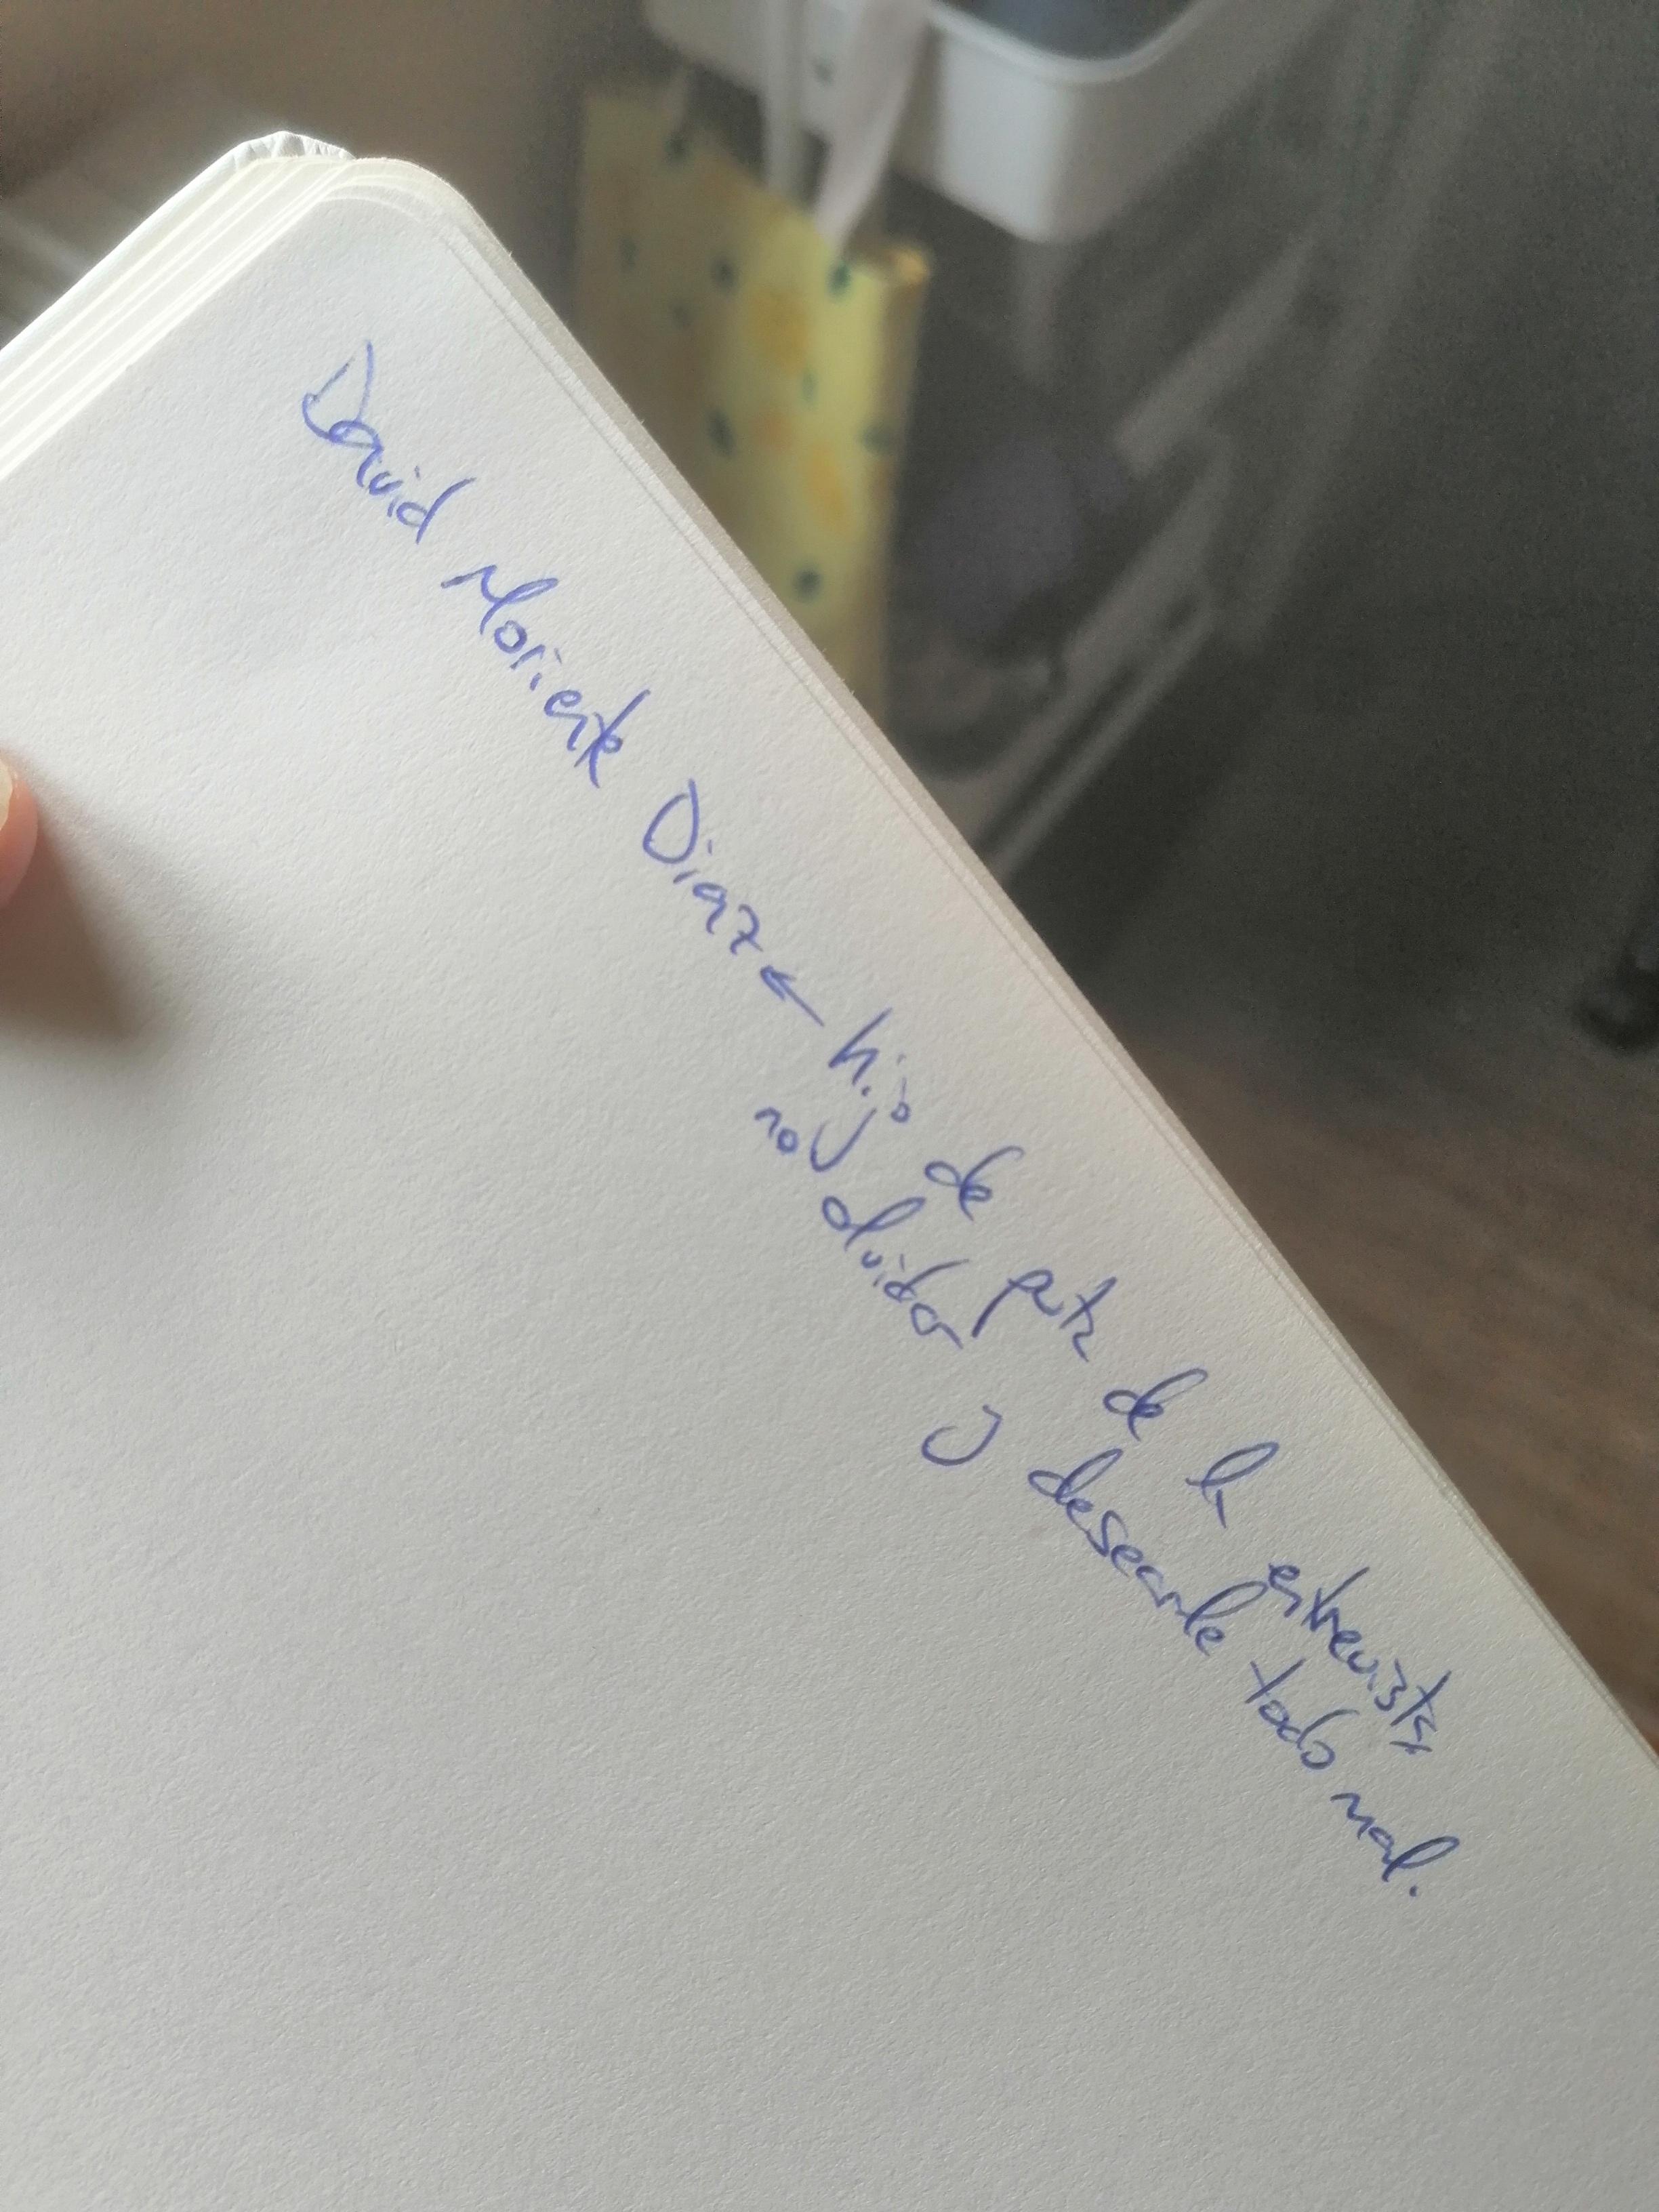 David Moriente Diaz ← hijo de puta de la entrevista,
no olvidar y desearle todo mal.